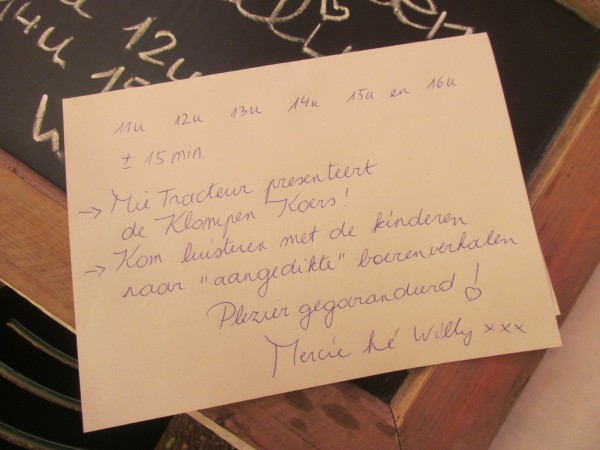 14u
12u
11u 12u 13u 14u 15u en 16u
± 15 min
→ Mie Tracteur presenteert
de Klompen Koers!
→ Kom luisteren met de kinderen
naar "aangedikte" boerenverhalen
Plezier gegarandeerd! ♡
Mercie hé Willy xxx